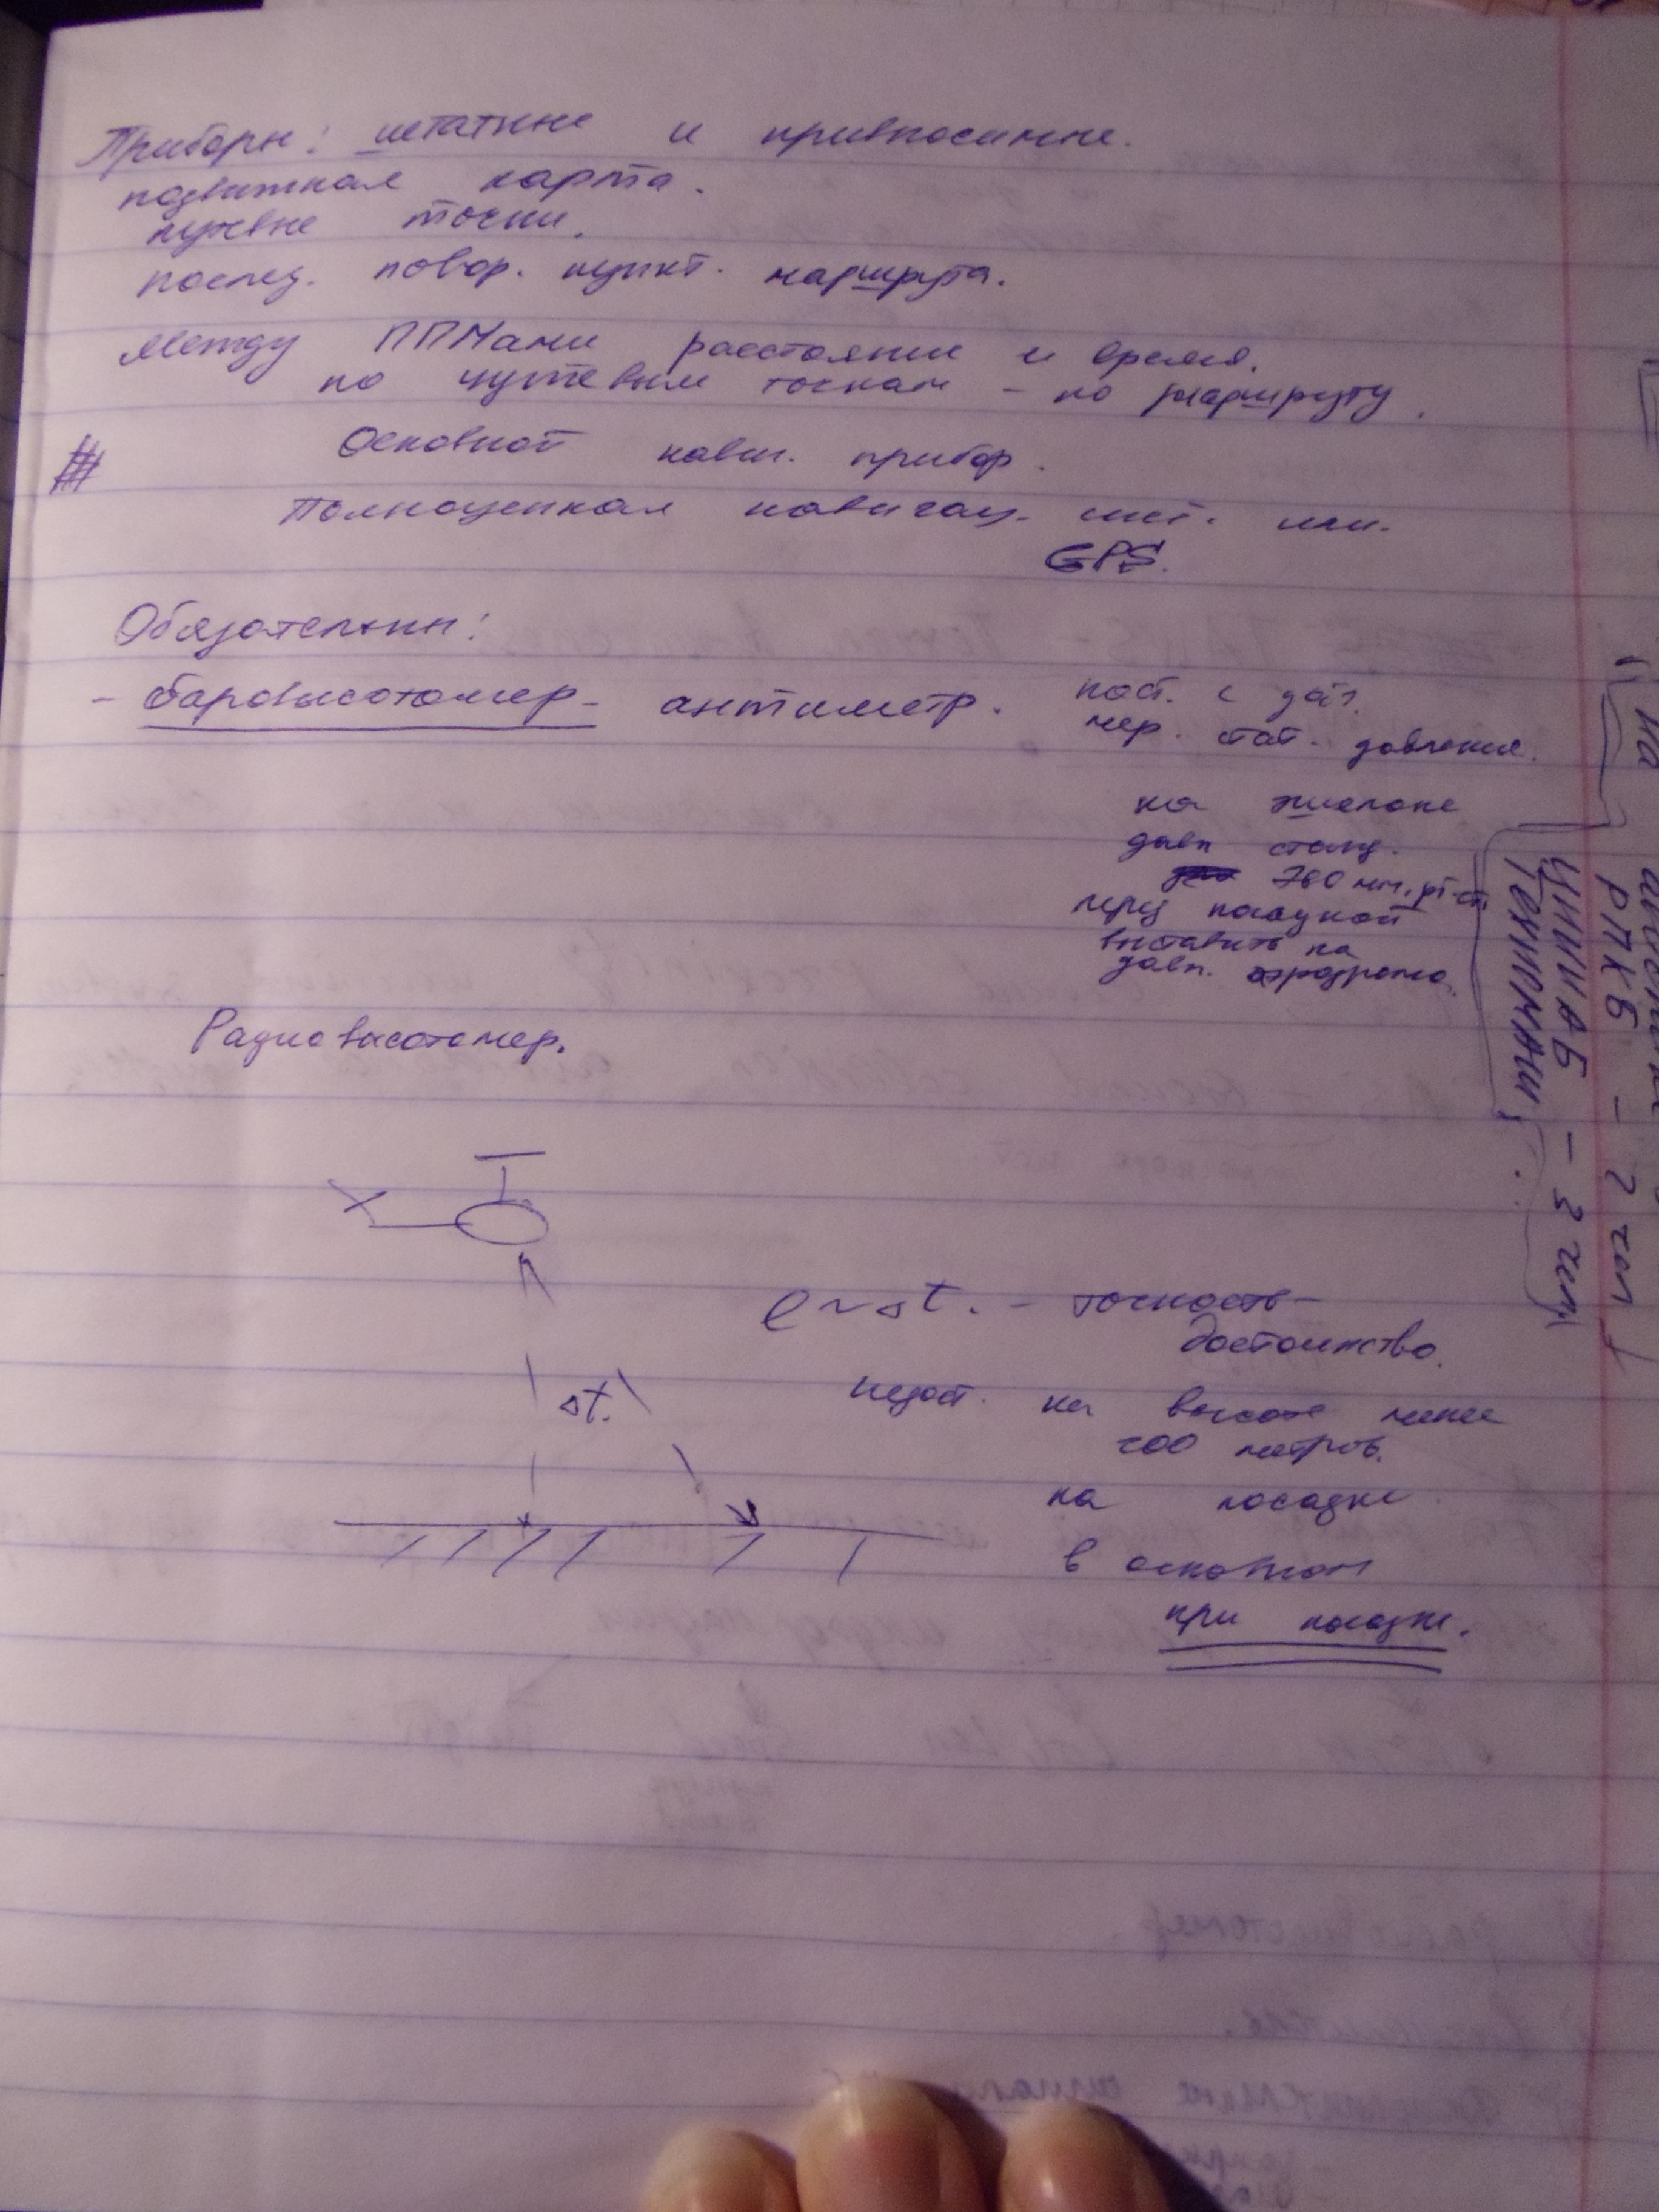 Приборы: штатные и привносимые.
подвижная карта.
путевые точки.
послед. повор. пункт. маршрута.
Между ППМами расстояние и время.
по путевым точкам - по маршруту.
Основной навиг. прибор.
Полноценная навигац. сист. или.
GPS.
Обязательны:
- баровысотомер - антиметр.
пост. с дат.
мер. стат. давления.
на эшелоне
давл станд.
760 мм. рт. ст.
перед посадкой
выставить на
давл. аэродрома.
Радиовысотомер.
l ~ Δt. - точность -
достоинство.
Δt.
недост. на высоте менее
200 метров.
на посадке
в основном
при посадке.
на
РПКБ - 2 чел
НИИАБ - 3 чел
Техномаш